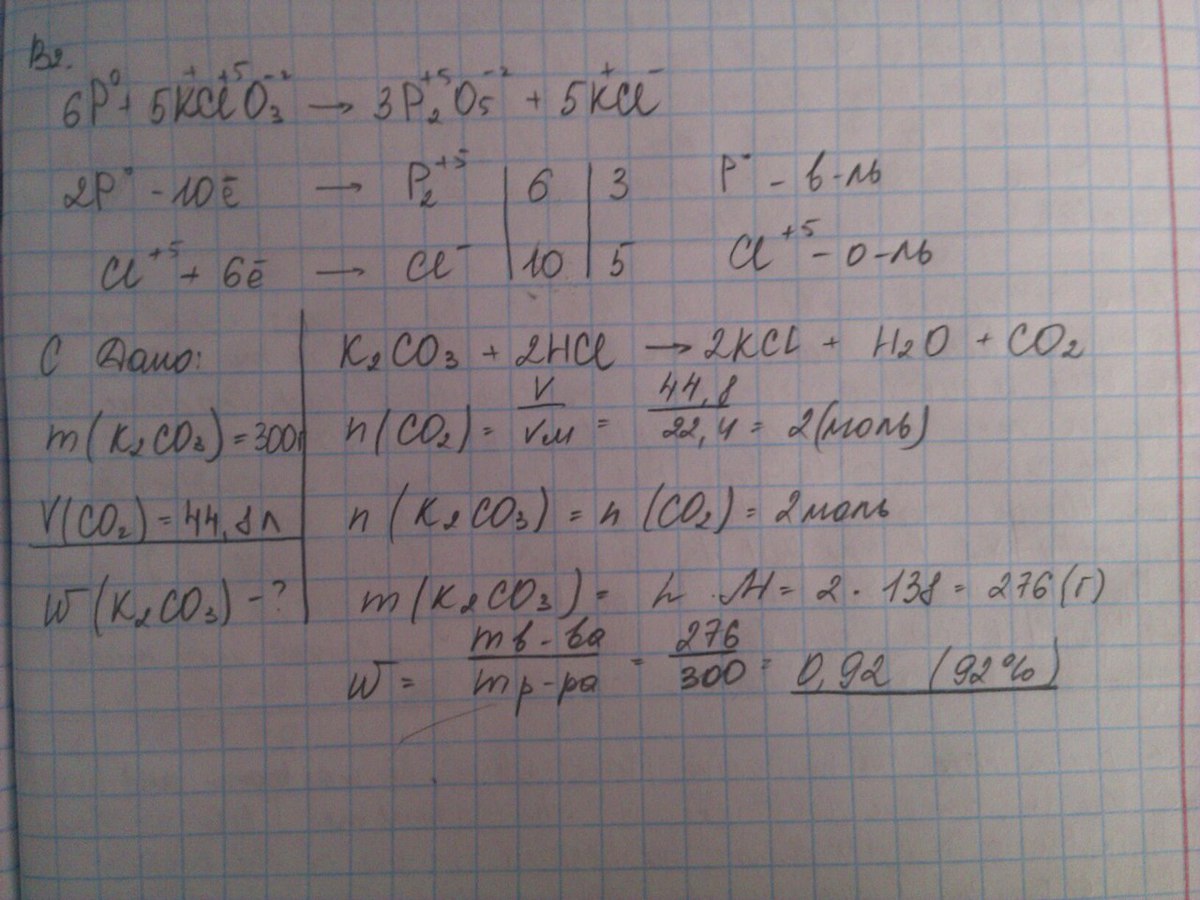 B2.
6P⁰ + 5K⁺Cl⁺⁵O₃⁻² → 3P₂⁺⁵O₅⁻² + 5K⁺Cl⁻
2P⁰ - 10ē → P₂⁺⁵ | 6 | 3 P⁰ - в-ль
Cl⁺⁵ + 6ē → Cl⁻ | 10 | 5 Cl⁺⁵ - о-ль
C Дано:
m(K₂CO₃) = 300г
V(CO₂) = 44,8л
W(K₂CO₃) - ?
K₂CO₃ + 2HCl → 2KCl + H₂O + CO₂
n(CO₂) = V/Vм = 44,8/22,4 = 2(моль)
n(K₂CO₃) = n(CO₂) = 2моль
m(K₂CO₃) = n · M = 2 · 138 = 276(г)
W = mв-ва/mр-ра = 276/300 = 0,92 (92%)